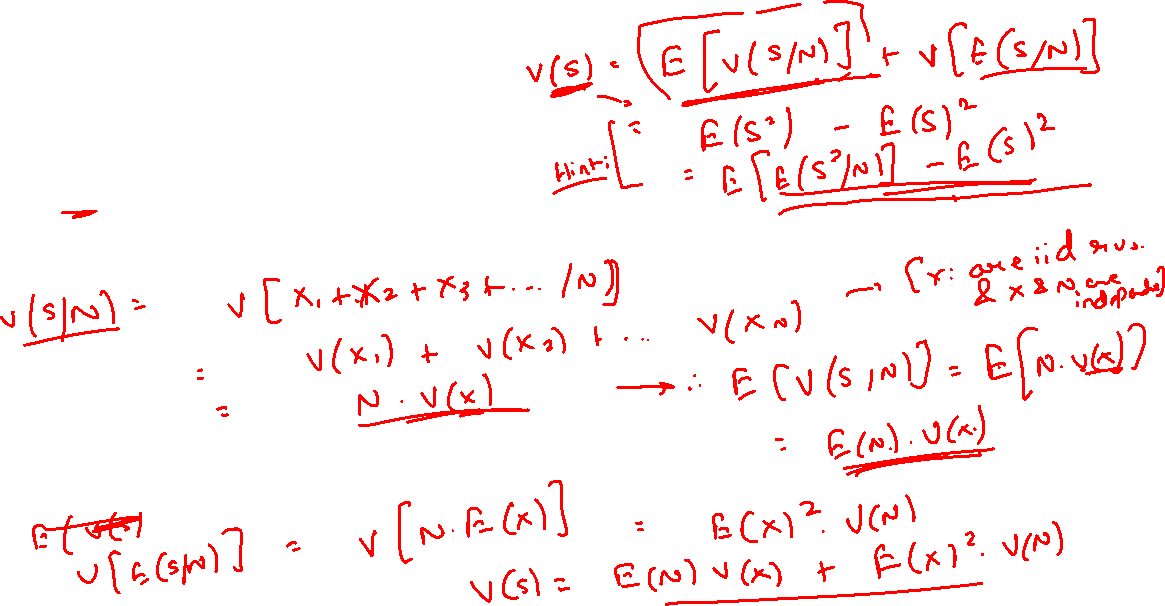 V(S) = E[V(S/N)] + V[E(S/N)]
= E(S²) - E(S)²
Hint: = E[E(S²/N)] - E(S)²
V(S|N) = V[X₁ + X₂ + X₃ + ... /N] → [Y: are iid r.v.s.
& X & N are independent]
= V(X₁) + V(X₂) + ... V(X_N)
= N . V(X) → ∴ E[V(S/N)] = E[N. V(X)]
= E(N). V(X)
V[E(S/N)] = V[N. E(X)] = E(X)². V(N)
V(S) = E(N) V(X) + E(X)². V(N)